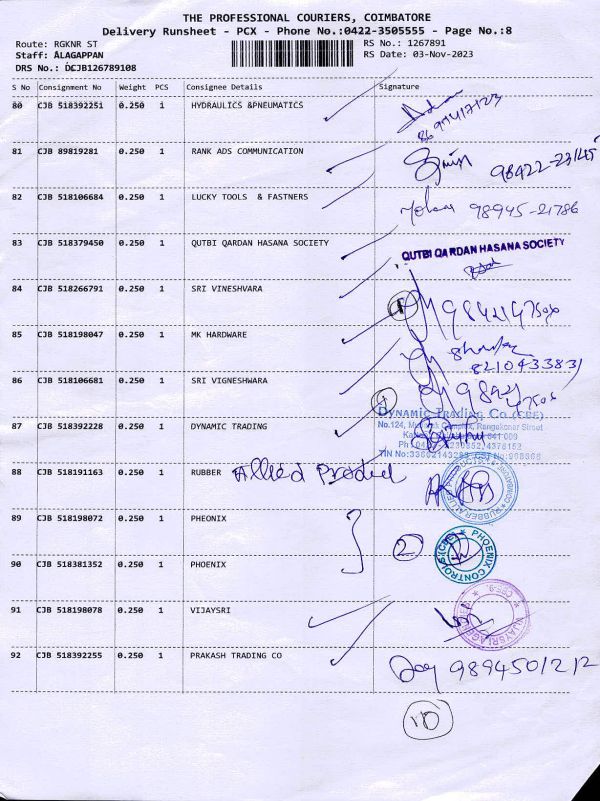 THE PROFESSIONAL COURIERS, COIMBATORE
Delivery Runsheet - PCX - Phone No.:0422-3505555 - Page No.:8
Route: RGKNR ST RS No.: 1267891
Staff: ALAGAPPAN RS Date: 03-Nov-2023
DRS No.: DCJB126789108
S No Consignment No Weight PCS Consignee Details Signature
80 CJB 518392251 0.250 1 HYDRAULICS &PNEUMATICS
81 CJB 89819281 0.250 1 RANK ADS COMMUNICATION 98422-23145
82 CJB 518106684 0.250 1 LUCKY TOOLS & FASTNERS 98945-21786
83 CJB 518379450 0.250 1 QUTBI QARDAN HASANA SOCIETY QUTBI QARDAN HASANA SOCIETY
84 CJB 518266791 0.250 1 SRI VINESHVARA
85 CJB 518198047 0.250 1 MK HARDWARE
8210433831
86 CJB 518106681 0.250 1 SRI VIGNESHWARA
87 CJB 518392228 0.250 1 DYNAMIC TRADING DYNAMIC TRADING CO (CBE)
No.124, Complex, Rangakonar Street
641 009
88 CJB 518191163 0.250 1 RUBBER Allied Product
89 CJB 518198072 0.250 1 PHEONIX
2 PHOENIX CONTROLS (CBE)
90 CJB 518381352 0.250 1 PHOENIX
91 CJB 518198078 0.250 1 VIJAYSRI
92 CJB 518392255 0.250 1 PRAKASH TRADING CO 9894501212
10